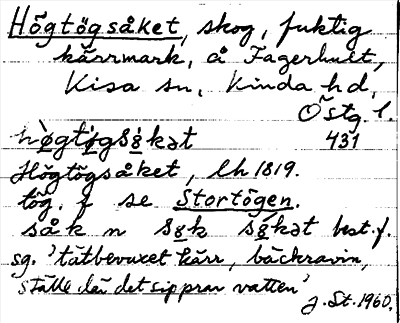 Högtögsåket, skog, fuktig
kärrmark, å Fagerhult,
Kisa sn, Kinda hd,
Östg. l.
431
Högtögsåket, lh 1819.
tög. f se Stortögen.
såk n best. f.
sg. 'tätbevuxet kärr, bäckravin,
ställe där det sipprar vatten'
J. St. 1960.